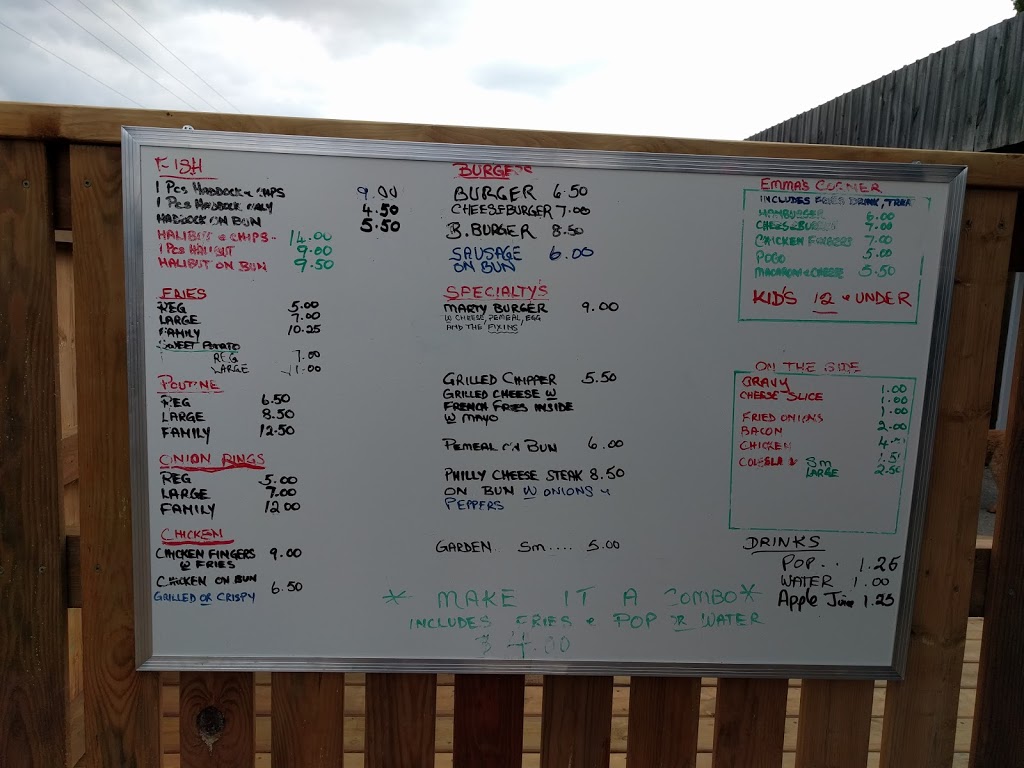 FISH
1 Pcs HADDOCK & CHIPS 9.00
1 Pcs HADDOCK ONLY 4.50
HADDOCK ON BUN 5.50
HALIBUT & CHIPS - 14.00
1 Pcs HALIBUT 9.00
HALIBUT ON BUN 9.50
FRIES
REG 5.00
LARGE 7.00
FAMILY 10.25
SWEET POTATO
REG 7.00
LARGE 11.00
POUTINE
REG 6.50
LARGE 8.50
FAMILY 12.50
ONION RINGS
REG 5.00
LARGE 7.00
FAMILY 12.00
CHICKEN
CHICKEN FINGERS 9.00
W FRIES
CHICKEN ON BUN 6.50
GRILLED OR CRISPY
BURGERS
BURGER 6.50
CHEESEBURGER 7.00
B. BURGER 8.50
SAUSAGE 6.00
ON BUN
SPECIALTY'S
MARTY BURGER 9.00
W CHEESE, PEMEAL, EGG
AND THE FIXINS
GRILLED CHIPPER 5.50
GRILLED CHEESE W
FRENCH FRIES INSIDE
W MAYO
PEMEAL ON BUN 6.00
PHILLY CHEESE STEAK 8.50
ON BUN W ONIONS &
PEPPERS
GARDEN.. Sm.... 5.00
* MAKE IT A COMBO *
INCLUDES FRIES & POP OR WATER
$ 4.00
EMMA'S CORNER
INCLUDES FRIES DRINK, TREAT
HAMBURGER 6.00
CHEESEBURGER 7.00
CHICKEN FINGERS 7.00
POGO 5.00
MACARONI & CHEESE 5.50
KID'S 12 & UNDER
ON THE SIDE
GRAVY 1.00
CHEESE SLICE 1.00
1.00
FRIED ONIONS
BACON 2.00
CHICKEN
Sm
LARGE 2.50
DRINKS
POP.. 1.25
WATER 1.00
Apple Juice 1.25